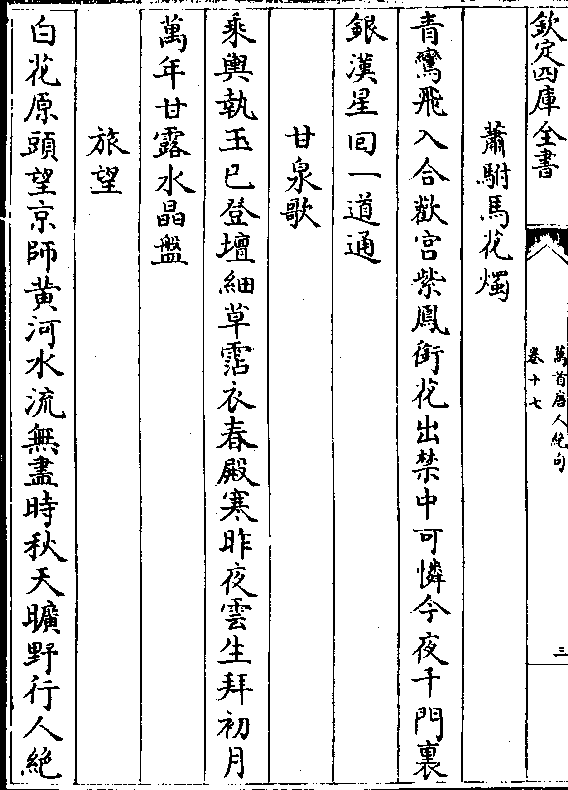 欽定四庫全書
萬首唐人絶句
卷十七
三
蕭駙馬花燭
青鸞飛入合歡宫紫鳳銜花出禁中可憐今夜千門裏
銀漢星囘一道通
甘泉歌
乘輿執玉已登壇細草霑衣春殿寒昨夜雲生拜初月
萬年甘露水晶盤
旅望
白花原頭望京師黄河水流無盡時秋天曠野行人絶